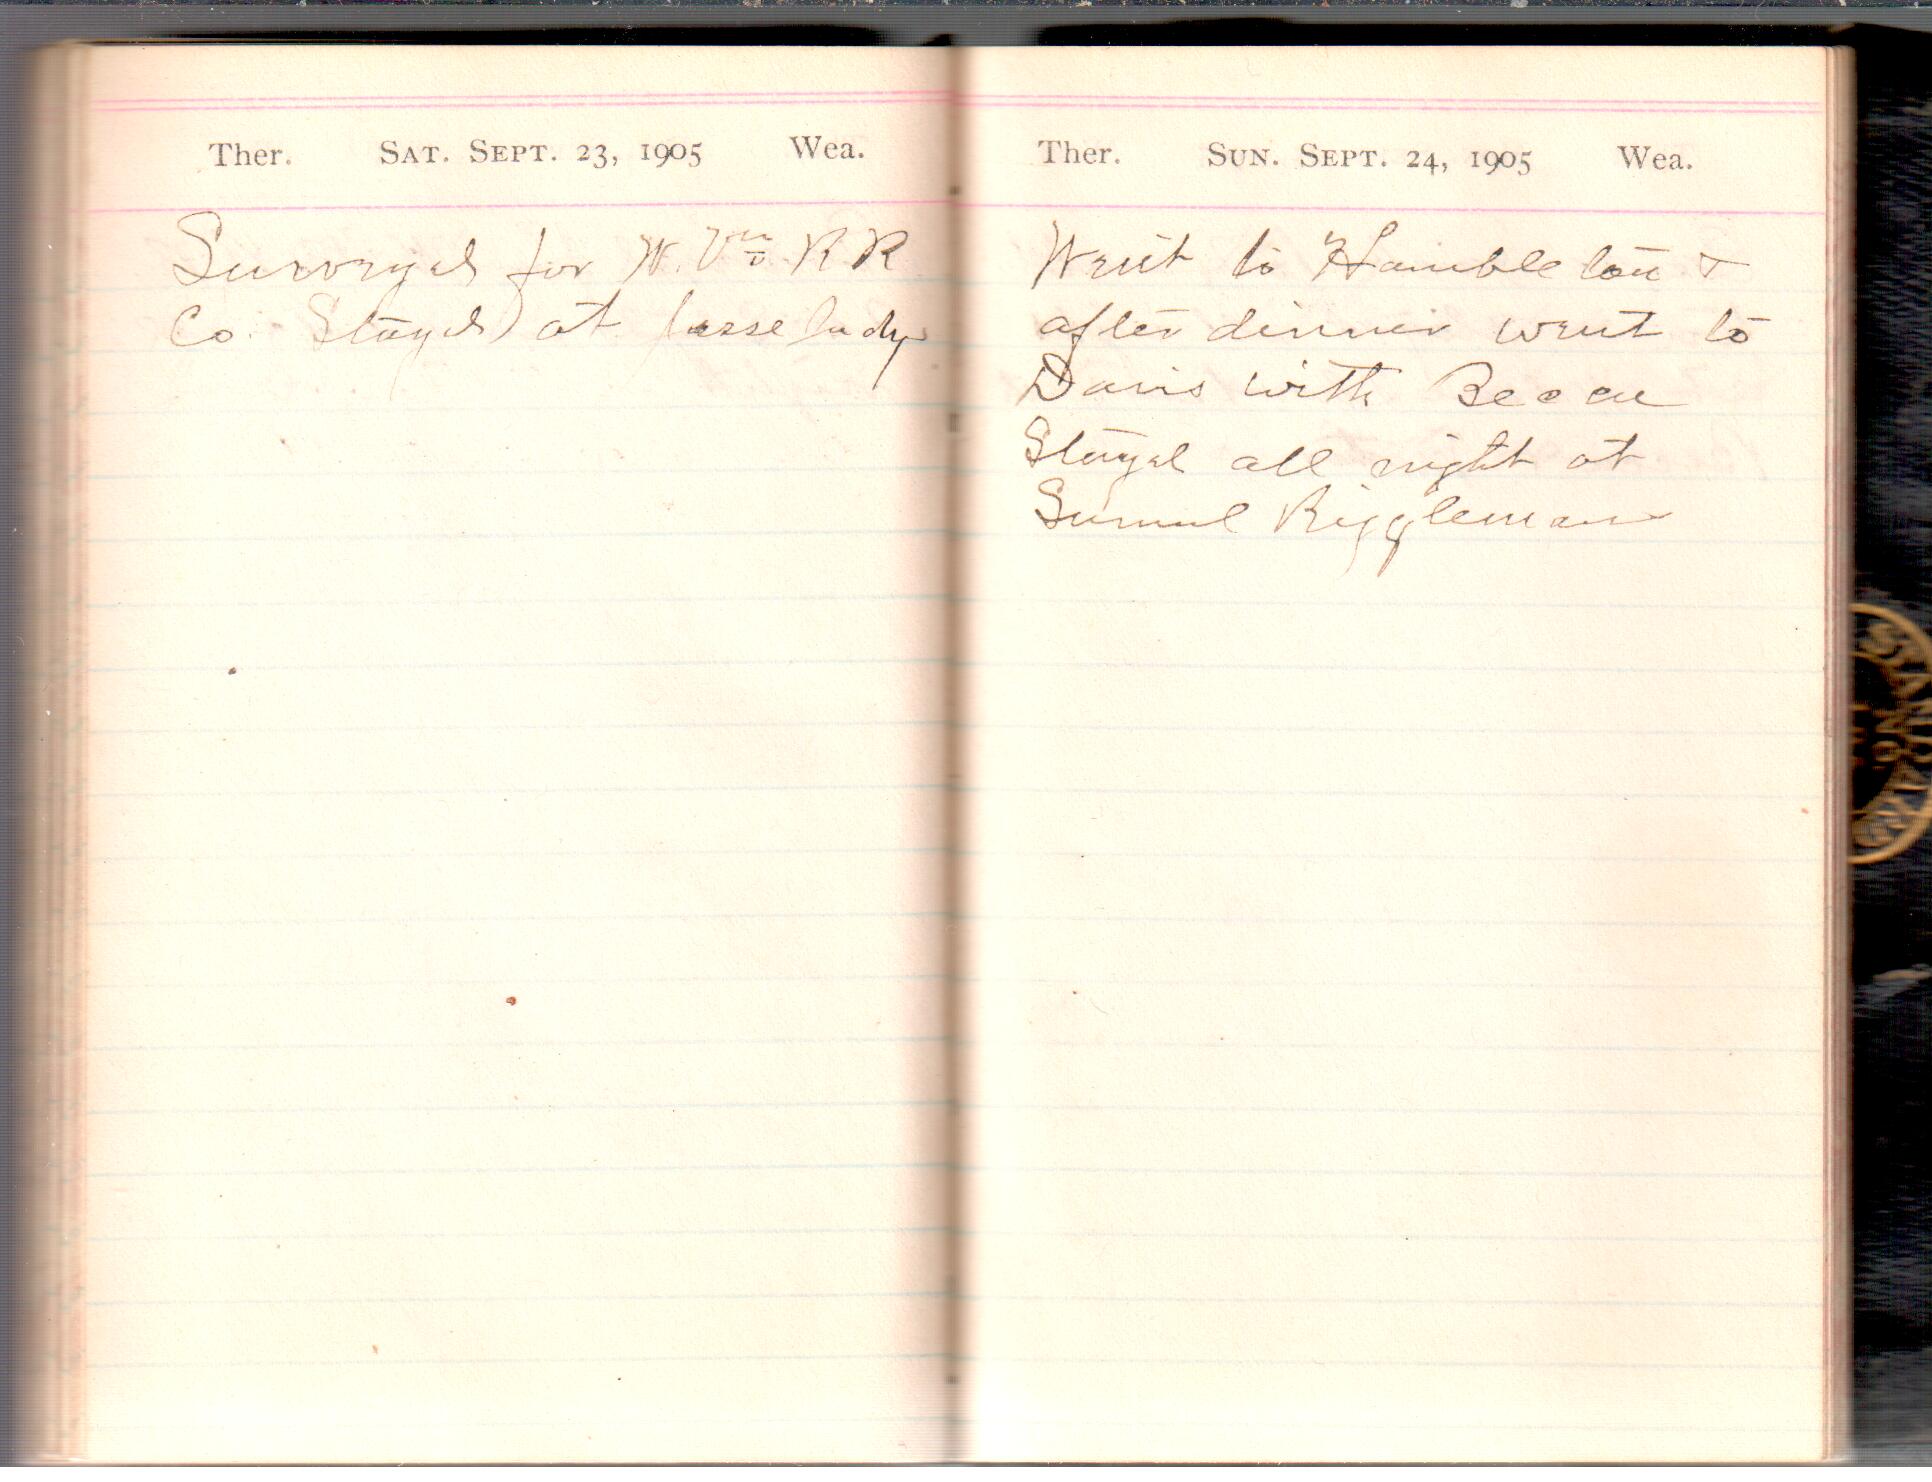 Ther. SAT. SEPT. 23, 1905 Wea.
Surveyed for W. Va. R R
Co. Stayed at Jesse Judy
Ther. SUN. SEPT. 24, 1905 Wea.
Went to Hambleton &
after dinner went to
Davis with
Stayed all night at
Samuel Riggleman
STANDARD